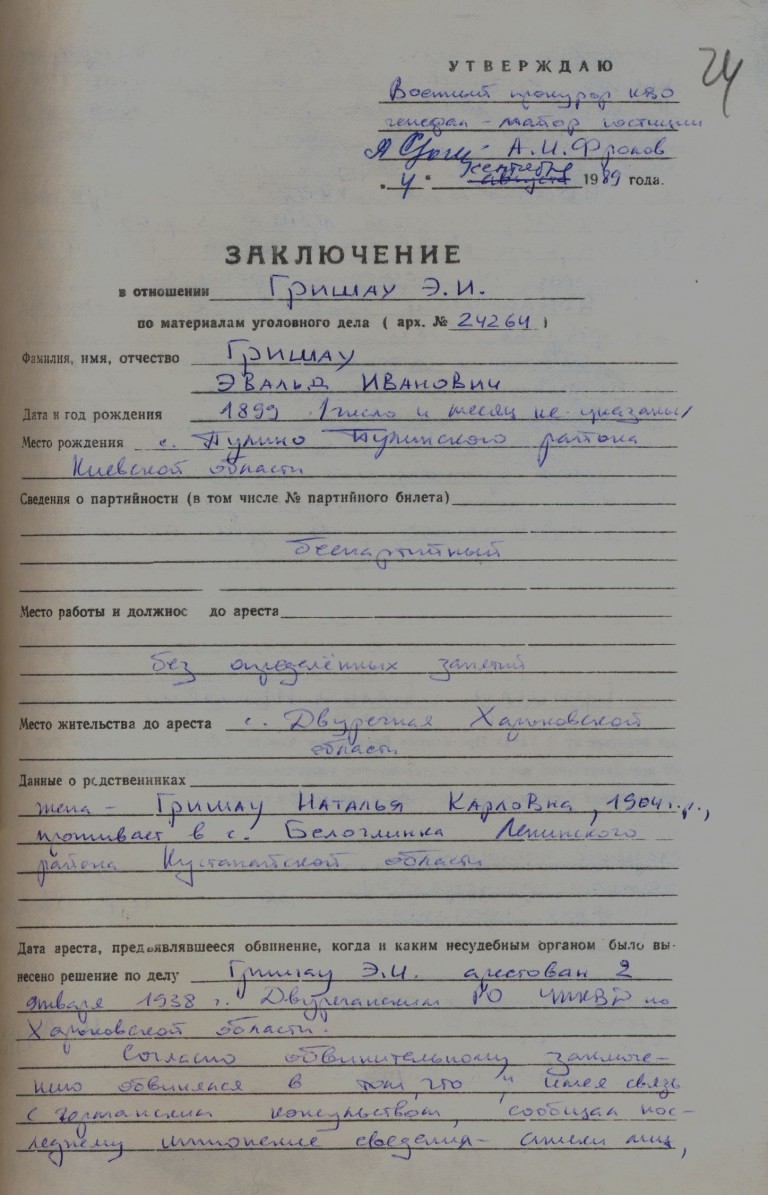 24
УТВЕРЖДАЮ
Военный прокурор КВО
генерал-майор юстиции
А.И.Фролов
"4" сентября августа 1989 года.
ЗАКЛЮЧЕНИЕ
в отношении Гришау Э.И.
по материалам уголовного дела ( арх. № 24264 )
Фамилия, имя, отчество Гришау
Эвальд Иванович
Дата и год рождения 1899 /число и месяц не указаны/
Место рождения с. Пулино Пулинского района
Киевской области
Сведения о партийности (в том числе № партийного билета)
беспартийный
Место работы и должнос до ареста
без определённых занятий
Место жительства до ареста с. Двуречная Харьковской
области
Данные о родственниках
жена - Гришау Наталья Карловна, 1904 г.р.,
проживает в с. Белоглинка Ленинского
района Кустанайской области
Дата ареста, предъявлявшееся обвинение, когда и каким несудебным органом было вы-
несено решение по делу Гришау Э.И. арестован 2
января 1938 г. Двуречанским РО УНКВД по
Харьковской области.
Согласно обвинительному заключе-
нию обвинялся в том, что "имея связь
с германским консульством, сообщал пос-
леднему шпионские сведения-